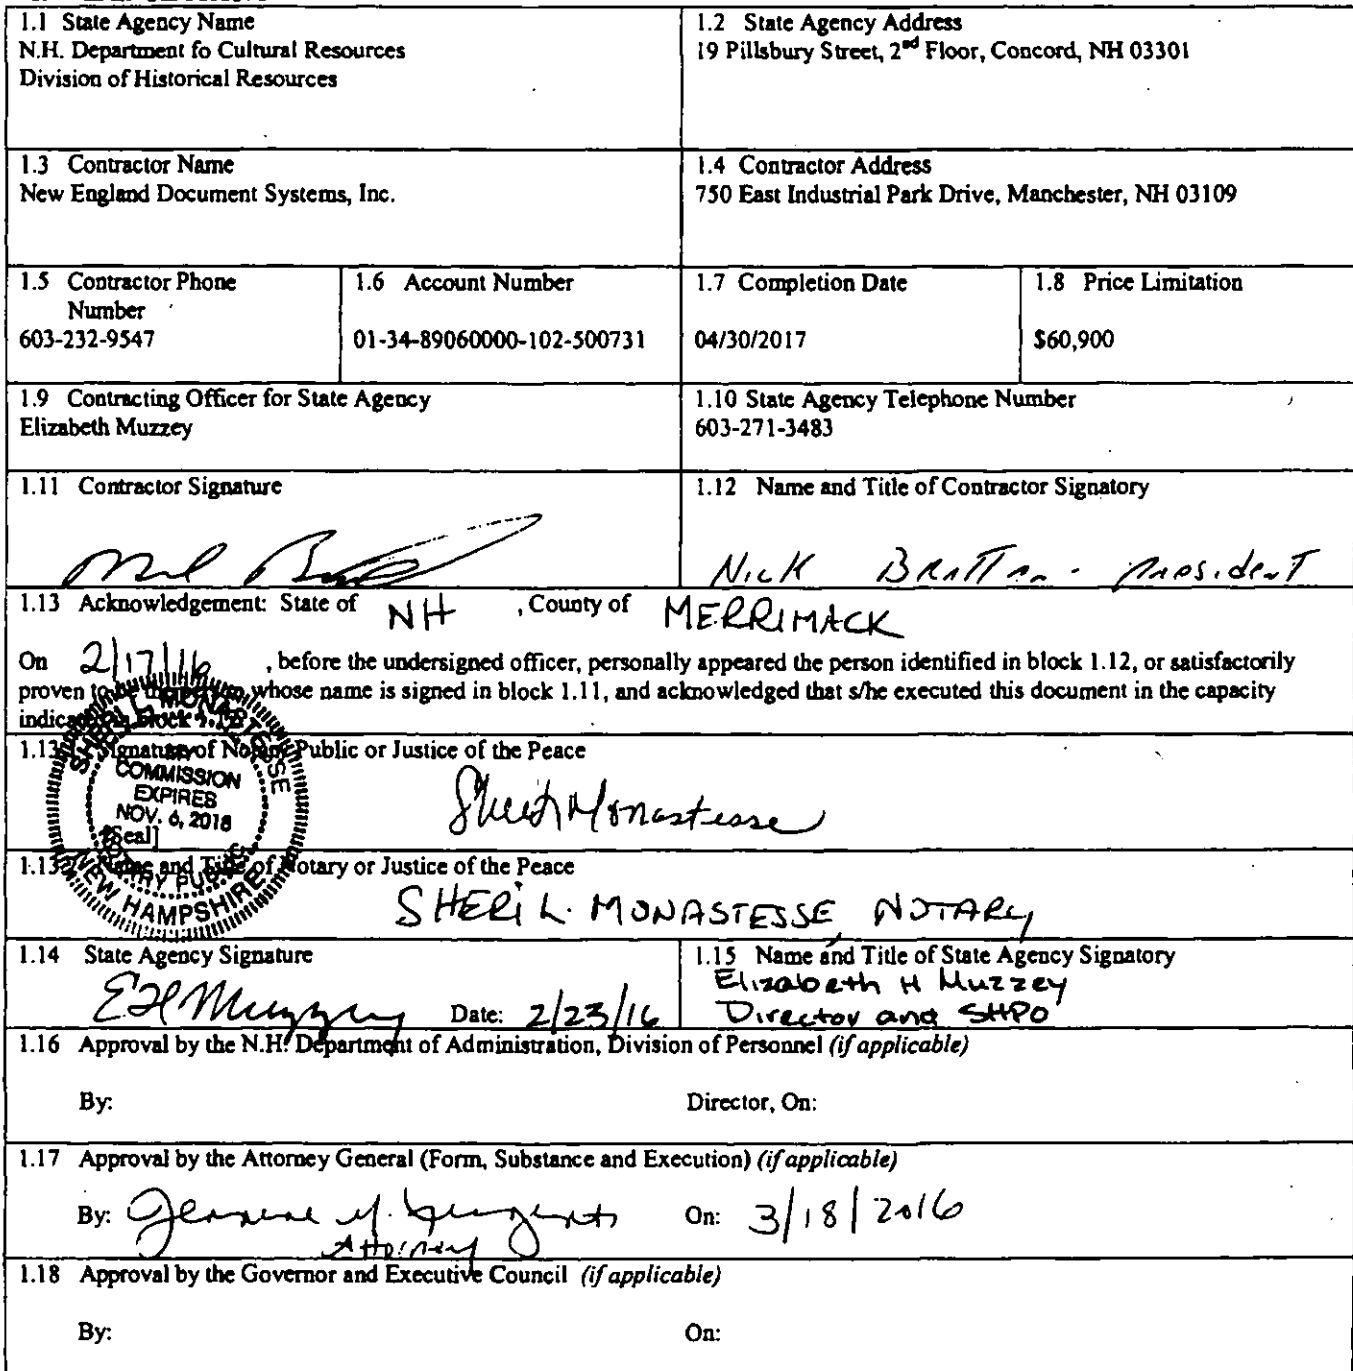 1.1 State Agency Name
N.H. Department fo Cultural Resources
Division of Historical Resources
1.2 State Agency Address
19 Pillsbury Street, 2nd Floor, Concord, NH 03301
1.3 Contractor Name
New England Document Systems, Inc.
1.4 Contractor Address
750 East Industrial Park Drive, Manchester, NH 03109
1.5 Contractor Phone
Number
603-232-9547
1.6 Account Number
01-34-89060000-102-500731
1.7 Completion Date
04/30/2017
1.8 Price Limitation
$60,900
1.9 Contracting Officer for State Agency
Elizabeth Muzzey
1.10 State Agency Telephone Number
603-271-3483
1.11 Contractor Signature
1.12 Name and Title of Contractor Signatory
Nick Brattan - President
1.13 Acknowledgement: State of NH , County of MERRIMACK
On 2/17/16 , before the undersigned officer, personally appeared the person identified in block 1.12, or satisfactorily
proven to be the person whose name is signed in block 1.11, and acknowledged that s/he executed this document in the capacity
indicated in block 1.12
1.13 Signature of Notary Public or Justice of the Peace
Sheri Monastesse
SHERI L. MONASTESSE
COMMISSION
EXPIRES
NOV. 6, 2018
[Seal]
NOTARY PUBLIC
NEW HAMPSHIRE
1.13 Name and Title of Notary or Justice of the Peace
SHERi L. MONASTESSE, NOTARY
1.14 State Agency Signature
EHMuzzey Date: 2/23/16
1.15 Name and Title of State Agency Signatory
Elizabeth H Muzzey
Director and SHPO
1.16 Approval by the N.H. Department of Administration, Division of Personnel (if applicable)
By: Director, On:
1.17 Approval by the Attorney General (Form, Substance and Execution) (if applicable)
By: On: 3/18/2016
Attorney
1.18 Approval by the Governor and Executive Council (if applicable)
By: On: